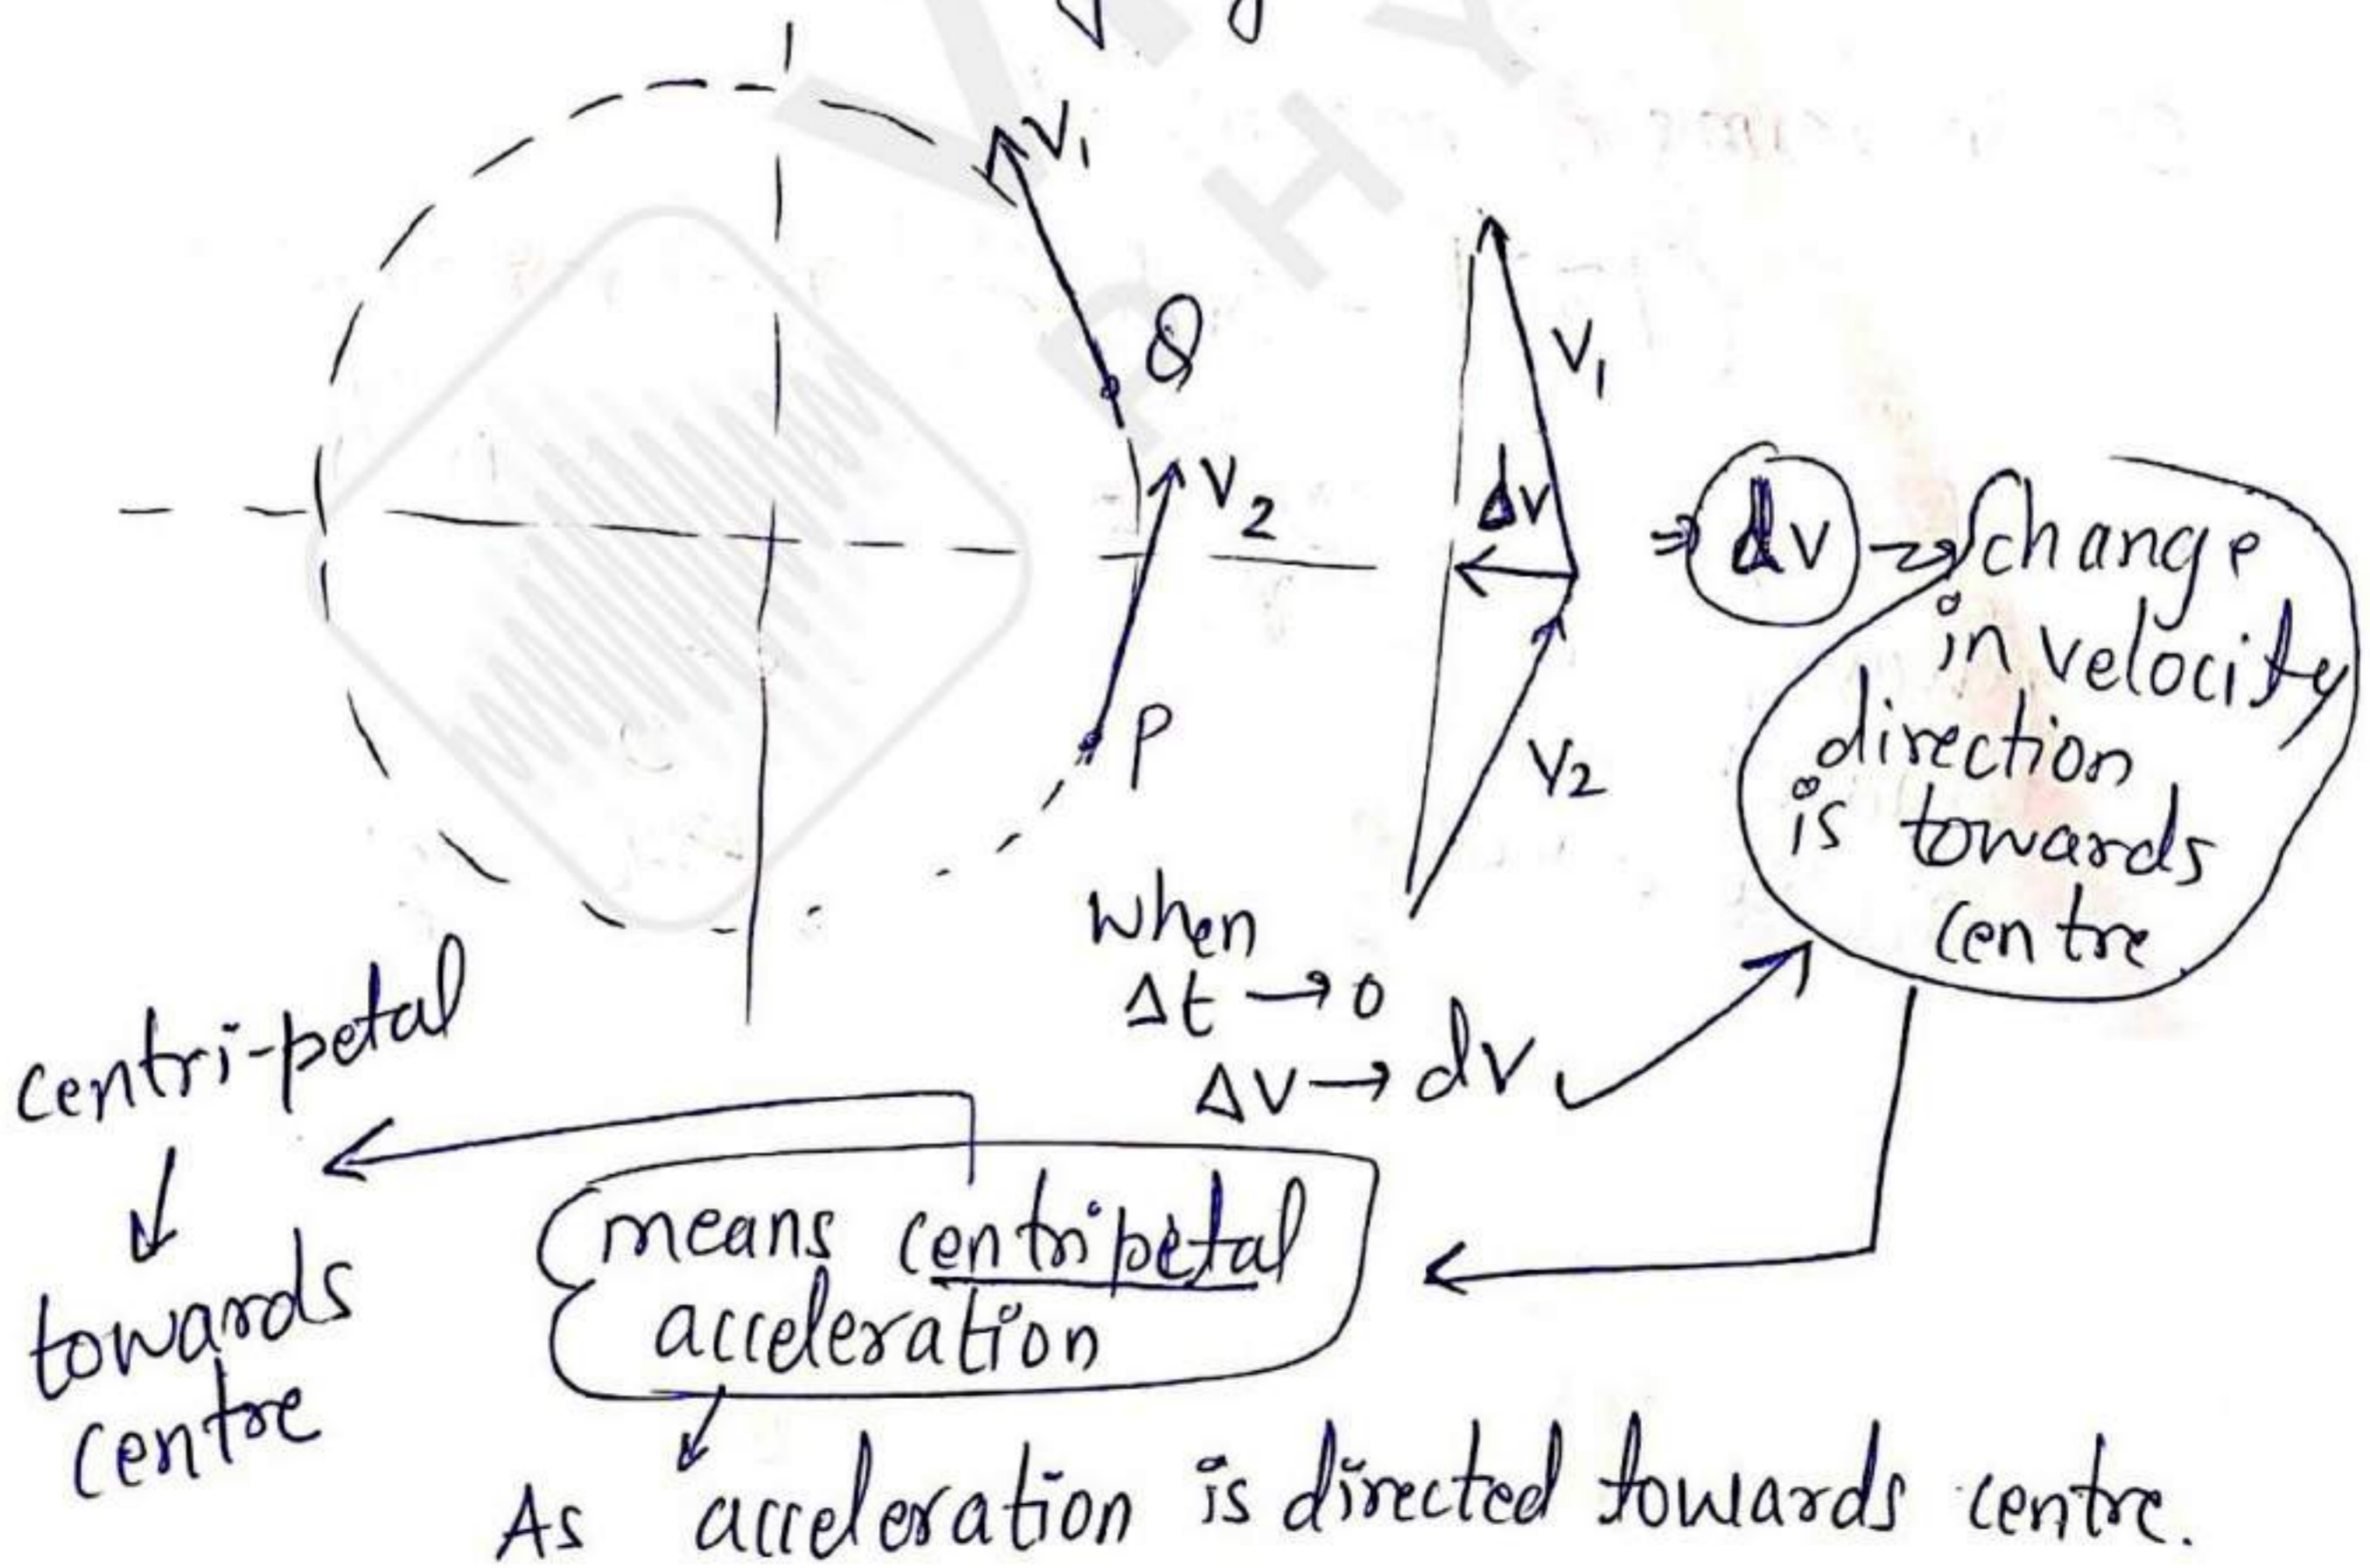 V₁
Q
V₂
P
V₁
Δv
V₂
⇒ dv → change
in velocity
direction
is towards
centre
when
Δt → 0
Δv → dv
centri-petal
↓
towards
centre
means centripetal
acceleration
As acceleration is directed towards centre.